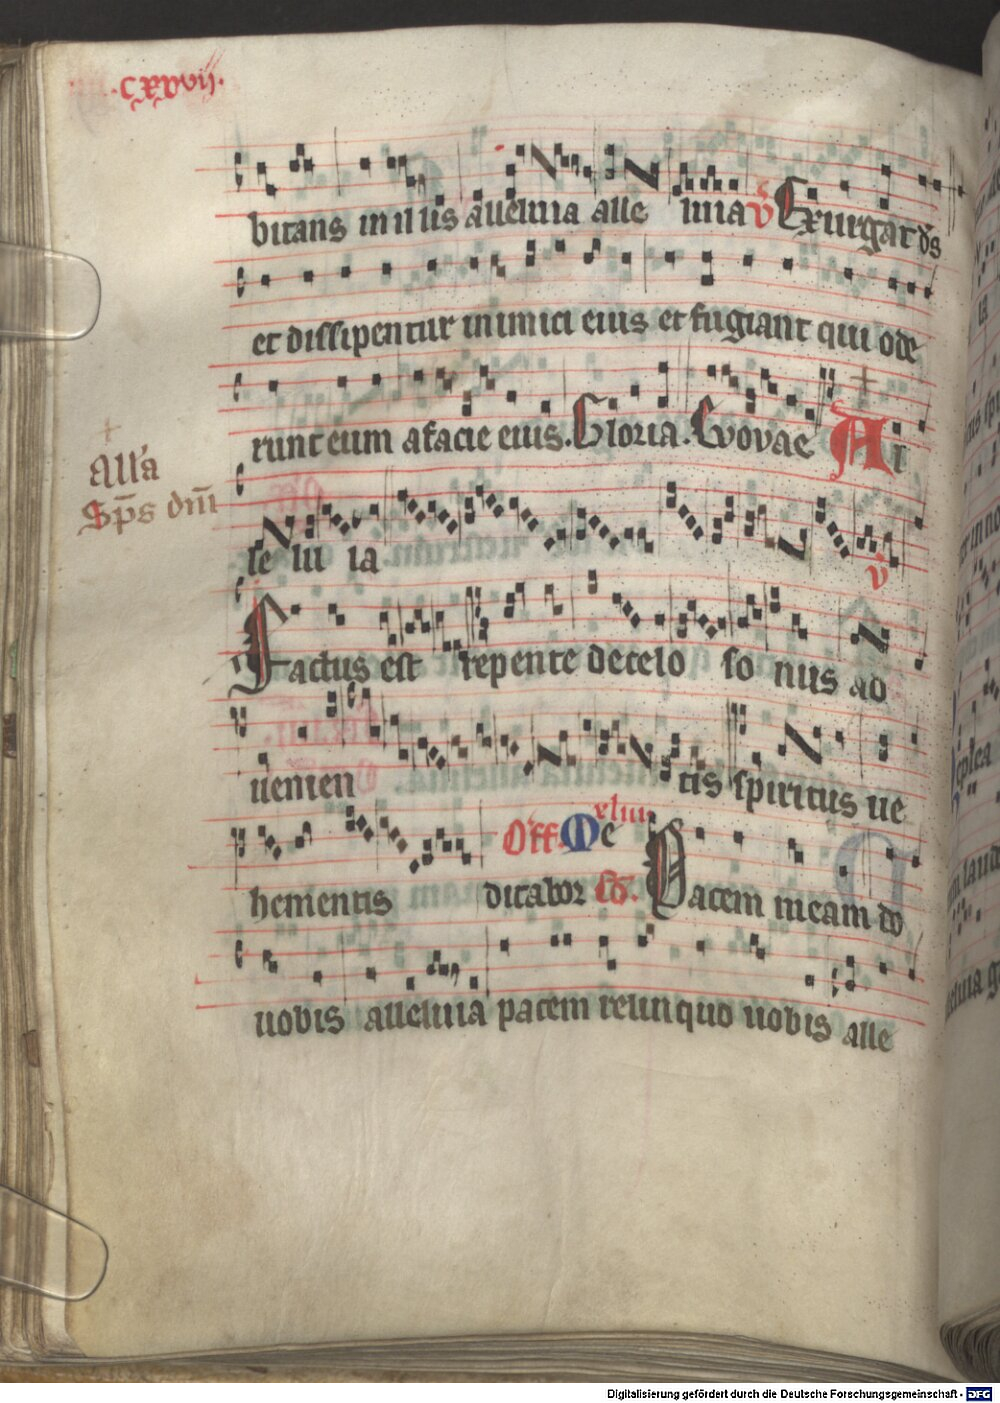 .cxxvij.
bitans in illis alleluia alle luia v̄ Exurgat ds̄
et dissipentur inimici eius et fugiant qui ode
runt eum a facie eius. Gloria. Evovae Al
All'a
Sp̄s dm̄
le lu ia v̄
Factus est repente de celo so nus ad
uenien tis spiritus ue
hementis Off. Me xliiii
ditabor Cō. Pacem meam do
uobis alleluia pacem relinquo uobis alle
Digitalisierung gefördert durch die Deutsche Forschungsgemeinschaft - DFG